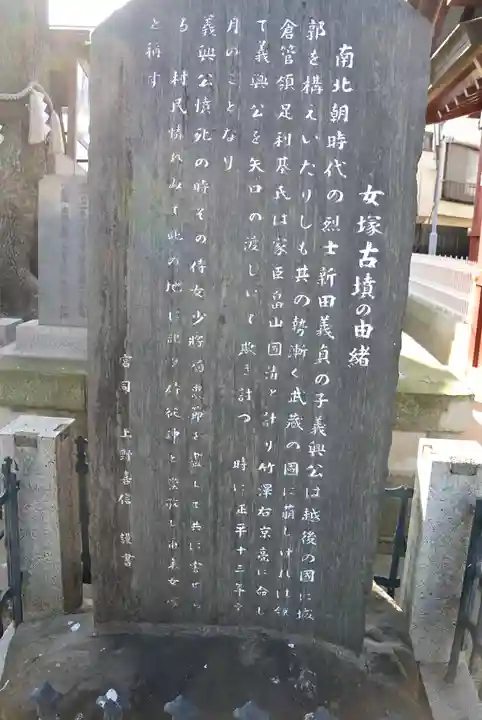 女塚古墳の由緒
南北朝時代の烈士新田義貞の子義興公は越後の國に城
郭を構えいたりしも其の勢漸く武蔵の國に萌しければ鎌
倉管領足利基氏は家臣畠山國清と計り竹澤右京亮に命じ
て義興公を矢口の渡しにて欺き討つ 時に正平十三年十
月のことなり
義興公憤死の時その侍女少将局忠節を盡して共に害せら
る 村民憐れみて此の地に祀り侍従神と
と稱す
宮司 上野喜信 謹書